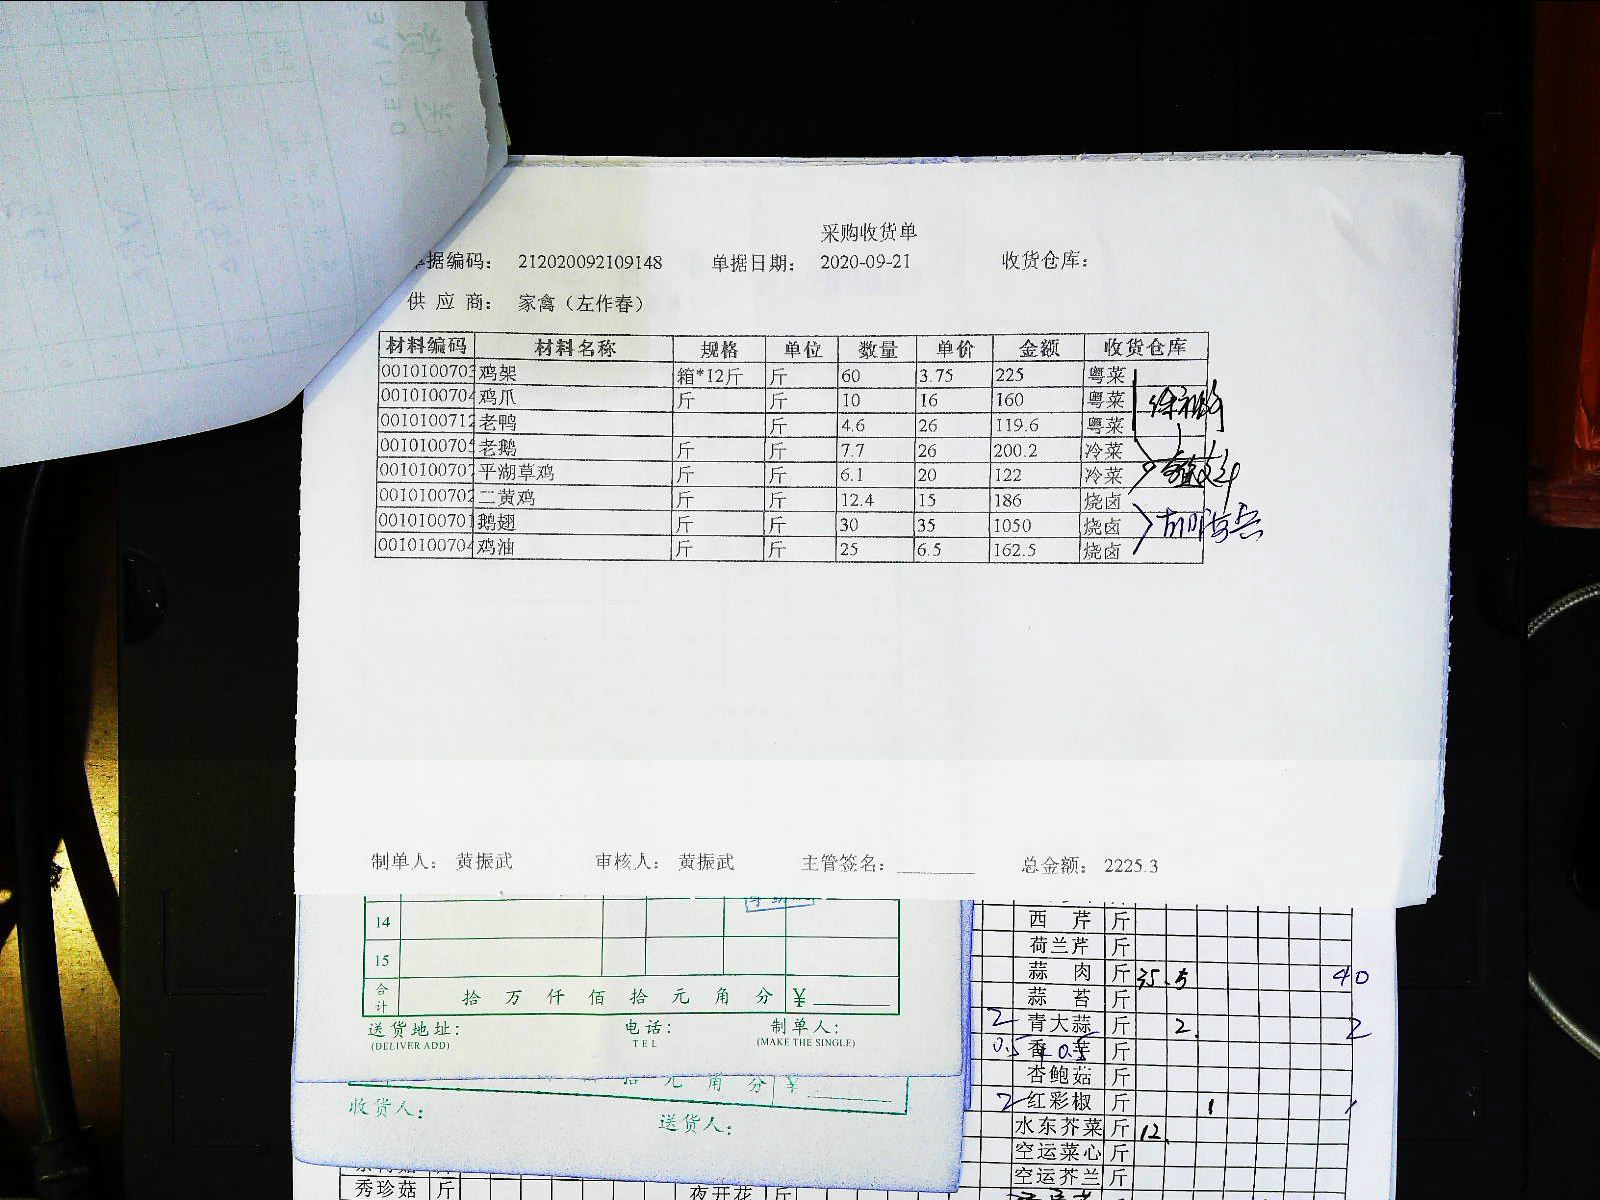 采购收货单
单据编码： 212020092109148 单据日期： 2020-09-21 收货仓库：
供 应 商： 家禽（左作春）
材料编码 材料名称 规格 单位 数量 单价 金额 收货仓库
0010100703 鸡架 箱*12斤 斤 60 3.75 225 粤菜
0010100704 鸡爪 斤 斤 10 16 160 粤菜
0010100712 老鸭 斤 4.6 26 119.6 粤菜
0010100705 老鹅 斤 斤 7.7 26 200.2 冷菜
0010100707 平湖草鸡 斤 斤 6.1 20 122 冷菜
0010100702 二黄鸡 斤 斤 12.4 15 186 烧卤
0010100701 鹅翅 斤 斤 30 35 1050 烧卤
0010100704 鸡油 斤 斤 25 6.5 162.5 烧卤
制单人： 黄振武 审核人： 黄振武 主管签名： 总金额： 2225.3
14
15
合计 拾 万 仟 佰 拾 元 角 分 ¥
送货地址： 电话： 制单人：
(DELIVER ADD) TEL (MAKE THE SINGLE)
拾 元 角 分 ¥
收货人： 送货人：
西 芹 斤
荷兰芹 斤
蒜 肉 斤 35.5 40
蒜 苔 斤
2 青大蒜 斤 2. 2
0.5 斤
杏鲍菇 斤
2 红彩椒 斤 1 1
水东芥菜 斤 12.
空运菜心 斤
空运芥兰 斤
秀珍菇 斤 夜开花 斤